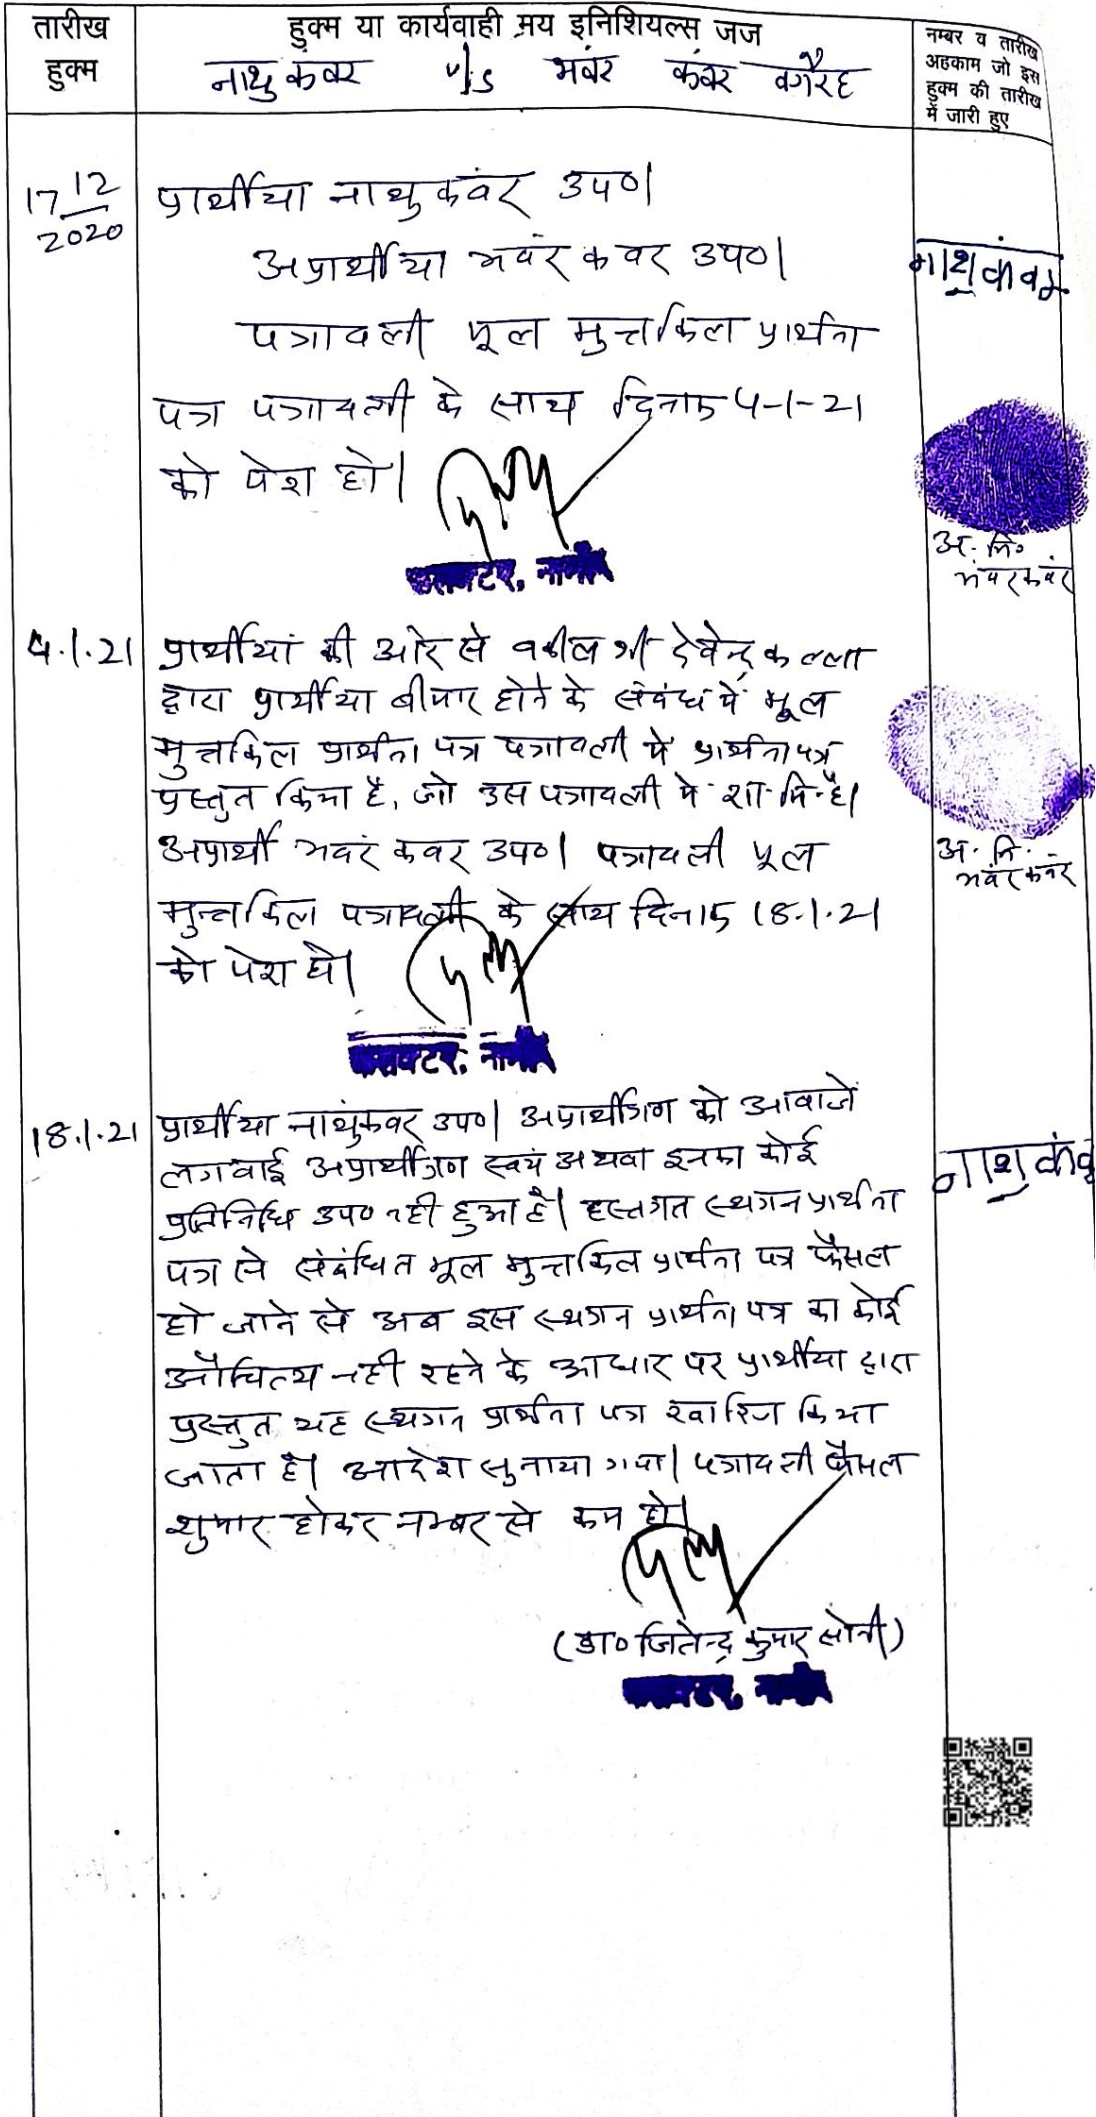 तारीख हुक्म
हुक्म या कार्यवाही मय इनिशियल्स जज
नाथु कंवर v/s भंवर कंवर वगैरह
नम्बर व तारीख
अहकाम जो इस
हुक्म की तारीख
में जारी हुए
17 12/2020
प्रार्थीया नाथु कवंर उप०।
अप्रार्थीया भवंर कवर उप०।
पत्रावली मूल मुन्तकिल प्रार्थना
पत्र पत्रावली के साथ दिनांक 4-1-21
को पेश हो।
कलक्टर, नागौर
नाथु कंवर
अ. नि०
भंवर कंवर
4.1.21
प्रार्थीयां की ओर से वकील श्री देवेन्द्र कल्ला
द्वारा प्रार्थीया बीमार होने के संबंध में मूल
मुन्तकिल प्रार्थना पत्र पत्रावली में प्रार्थना पत्र
प्रस्तुत किया है, जो उस पत्रावली मे शा.मि.है।
अप्रार्थी भवरं कवर उप०। पत्रावली मूल
मुन्तकिल पत्रावली के साथ दिनांक 18.1.21
को पेश हो।
कलक्टर, नागौर
अ. नि.
भवंर कंवर
18.1.21
प्रार्थीया नाथुंकवर उप०। अप्रार्थीगण को आवाजें
लगवाई अप्रार्थीगण स्वयं अथवा इनका कोई
प्रतिनिधि उप० नही हुआ है। हस्तगत स्थगन प्रार्थना
पत्र से संबंधित मूल मुन्तकिल प्रार्थना पत्र फैसल
हो जाने से अब इस स्थगन प्रार्थना पत्र का कोई
औचित्य नही रहने के आधार पर प्रार्थीया द्वारा
प्रस्तुत यह स्थगन प्रार्थना पत्र खारिज किया
जाता है। आदेश सुनाया गया। पत्रावली फैसल
शुमार होकर नम्बर से कम हो।
नाथु कंव
(डा० जितेन्द्र कुमार सोनी)